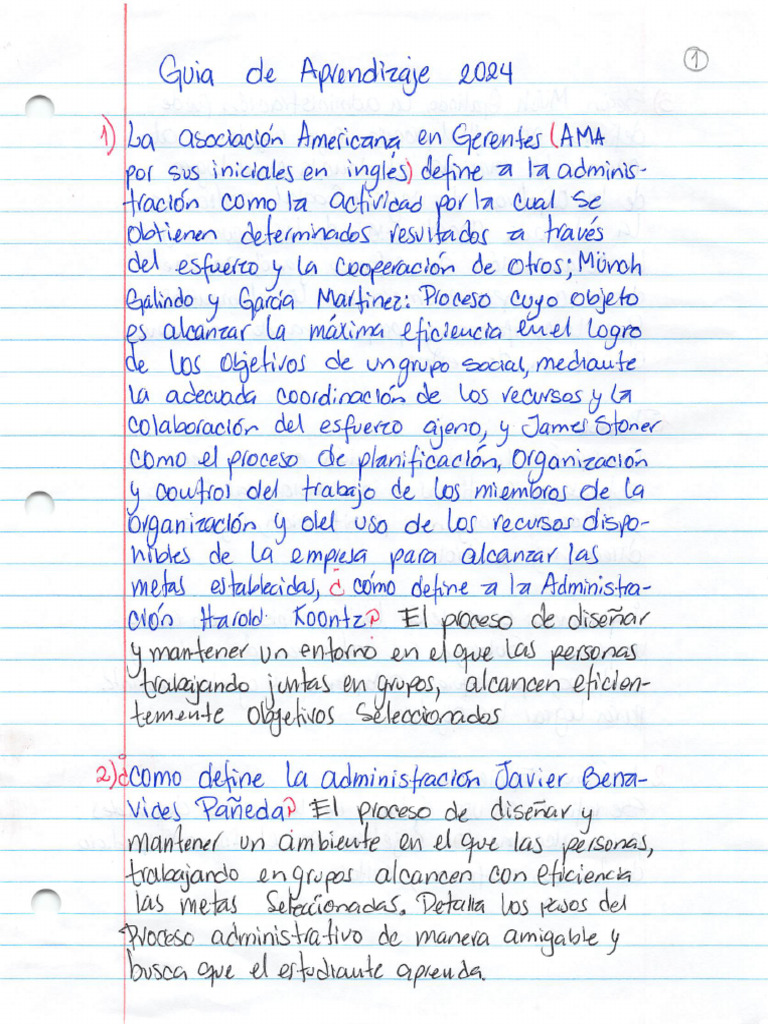 Guia de Aprendizaje 2024
1
1) La asociación Americana en Gerentes (AMA
por sus iniciales en inglés) define a la adminis-
tración como la actividad por la cual se
obtienen determinados resultados a través
del esfuerzo y la cooperación de otros; Münch
Galindo y García Martinez: Proceso cuyo objeto
es alcanzar la máxima eficiencia en el logro
de los objetivos de un grupo social, mediante
la adecuada coordinación de los recursos y la
colaboración del esfuerzo ajeno, y James Stoner
como el proceso de planificación, organización
y control del trabajo de los miembros de la
organización y del uso de los recursos dispo-
nibles de la empresa para alcanzar las
metas establecidas, ¿cómo define a la Administra-
ción Harold Koontz? El proceso de diseñar
y mantener un entorno en el que las personas
trabajando juntas en grupos, alcancen eficien-
temente objetivos seleccionados
2) ¿como define la administración Javier Bena-
vides Pañeda? El proceso de diseñar y
mantener un ambiente en el que las personas,
trabajando en grupos alcancen con eficiencia
las metas seleccionadas. Detalla los pasos del
Proceso administrativo de manera amigable y
busca que el estudiante aprenda.